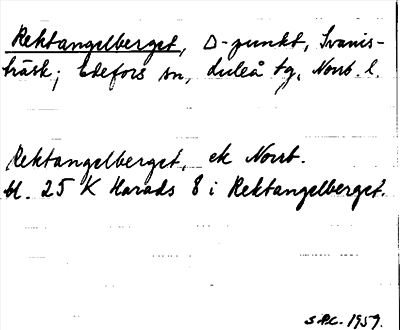 Rektangelberget, Δ-punkt, Svanis-
träsk; Edefors sn, Luleå tg, Norrb. l.
Rektangelberget, ek Norrb.
bl. 25 K Harads 8 i Rektangelberget.
1959.